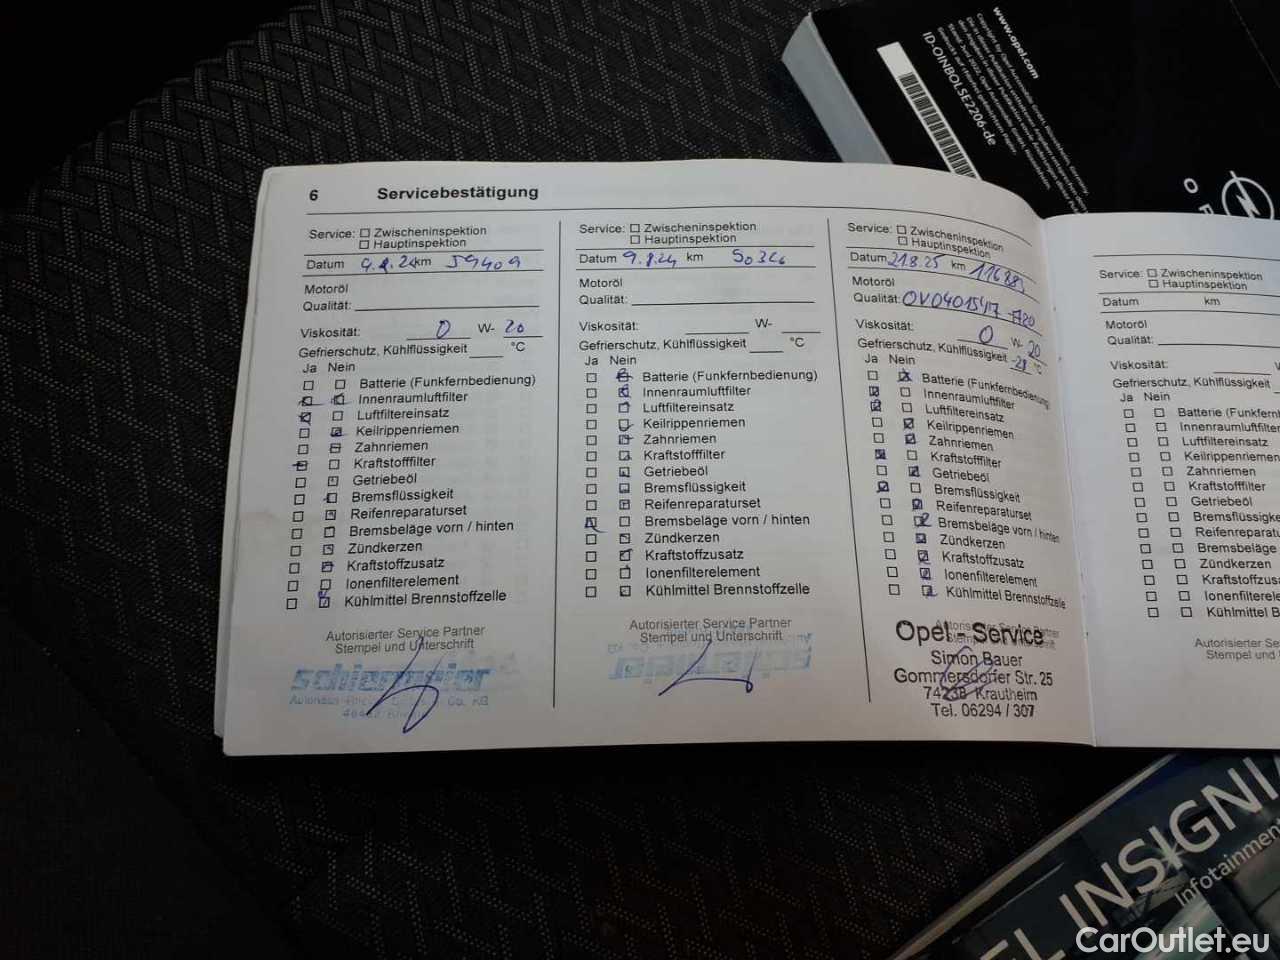 www.opel.com
Copyright by Opel Automobile GmbH, Rüsselsheim, Germany.
ID-OINBOLSE2206-de
6 Servicebestätigung
Service: Zwischeninspektion
Hauptinspektion
Datum km 59409
Motoröl
Qualität:
Viskosität: 0 W- 20
Gefrierschutz, Kühlflüssigkeit °C
Ja Nein
Batterie (Funkfernbedienung)
Innenraumluftfilter
Luftfiltereinsatz
Keilrippenriemen
Zahnriemen
Kraftstofffilter
Getriebeöl
Bremsflüssigkeit
Reifenreparaturset
Bremsbeläge vorn / hinten
Zündkerzen
Kraftstoffzusatz
Ionenfilterelement
Kühlmittel Brennstoffzelle
Autorisierter Service Partner
Stempel und Unterschrift
Service: Zwischeninspektion
Hauptinspektion
Datum 9.8.24 km
Motoröl
Qualität:
Viskosität: W-
Gefrierschutz, Kühlflüssigkeit °C
Ja Nein
Batterie (Funkfernbedienung)
Innenraumluftfilter
Luftfiltereinsatz
Keilrippenriemen
Zahnriemen
Kraftstofffilter
Getriebeöl
Bremsflüssigkeit
Reifenreparaturset
Bremsbeläge vorn / hinten
Zündkerzen
Kraftstoffzusatz
Ionenfilterelement
Kühlmittel Brennstoffzelle
Autorisierter Service Partner
Stempel und Unterschrift
Service: Zwischeninspektion
Hauptinspektion
Datum 21.8.25 km
Motoröl
Qualität: OV0401547
Viskosität: 0 W- 20
Gefrierschutz, Kühlflüssigkeit -28 °C
Ja Nein
Batterie (Funkfernbedienung)
Innenraumluftfilter
Luftfiltereinsatz
Keilrippenriemen
Zahnriemen
Kraftstofffilter
Getriebeöl
Bremsflüssigkeit
Reifenreparaturset
Bremsbeläge vorn / hinten
Zündkerzen
Kraftstoffzusatz
Ionenfilterelement
Kühlmittel Brennstoffzelle
Autorisierter Service Partner
Opel - Service
Simon Bauer
Gommersdorfer Str. 25
74238 Krautheim
Tel. 06294 / 307
Service: Zwischeninspektion
Hauptinspektion
Datum km
Motoröl
Qualität:
Viskosität:
Gefrierschutz, Kühlflüssigkeit
Ja Nein
Batterie (Funkfernb
Innenraumluftfilter
Luftfiltereinsatz
Keilrippenriemen
Zahnriemen
Kraftstofffilter
Getriebeöl
Bremsflüssigke
Reifenreparatu
Bremsbeläge
Zündkerzen
Kraftstoffzusa
Ionenfilterele
Kühlmittel B
Autorisierter Se
Stempel und
EL INSIGNIA
Infotainment
CarOutlet.eu